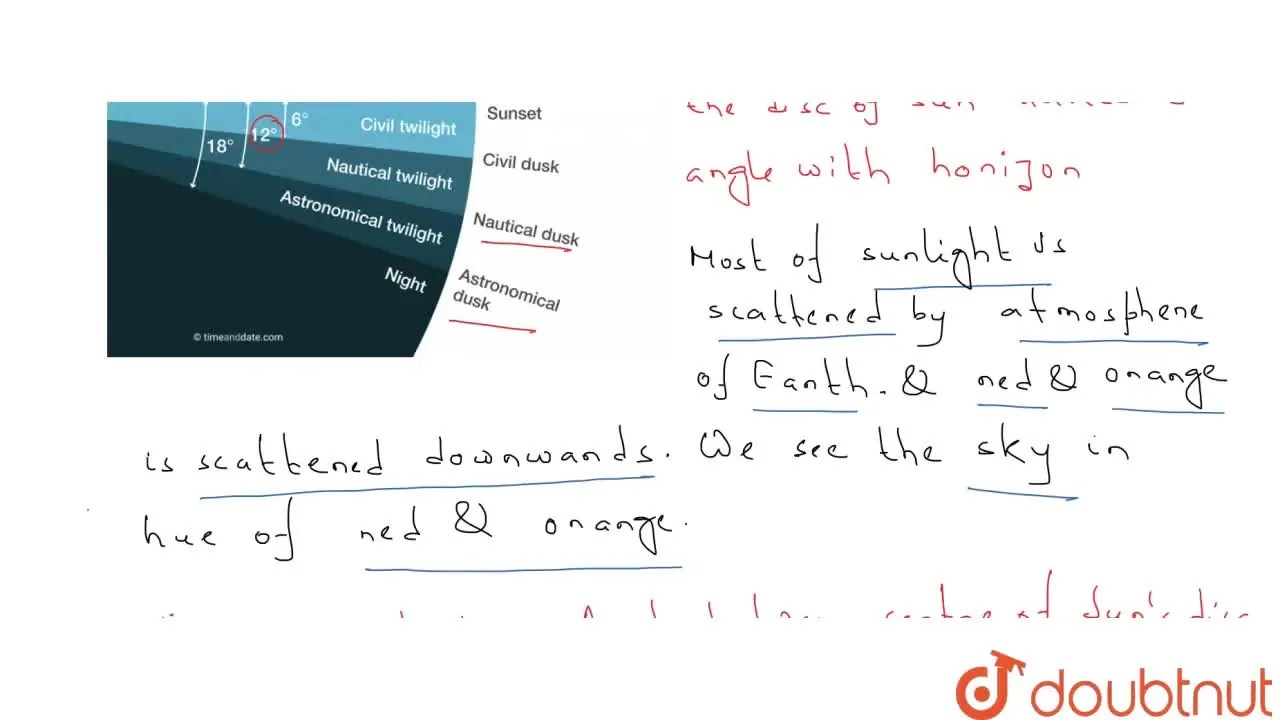 6°
12°
18°
Civil twilight
Nautical twilight
Astronomical twilight
Night
Sunset
Civil dusk
Nautical dusk
Astronomical
dusk
© timeanddate.com
the disc of sun
angle with horizon
Most of sunlight is
scattered by atmosphere
of Earth. & red & orange
is scattered downwards. We see the sky in
hue of red & orange.
centre of Sun's disc
doubtnut